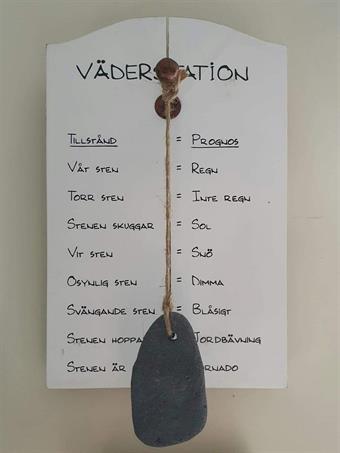 VÄDERSTATION
TILLSTÅND = PROGNOS
VÅT STEN = REGN
TORR STEN = INTE REGN
STENEN SKUGGAR = SOL
VIT STEN = SNÖ
OSYNLIG STEN = DIMMA
SVÄNGANDE STEN = BLÅSIGT
STENEN HOPPA JORDBÄVNING
STENEN ÄR RNADO